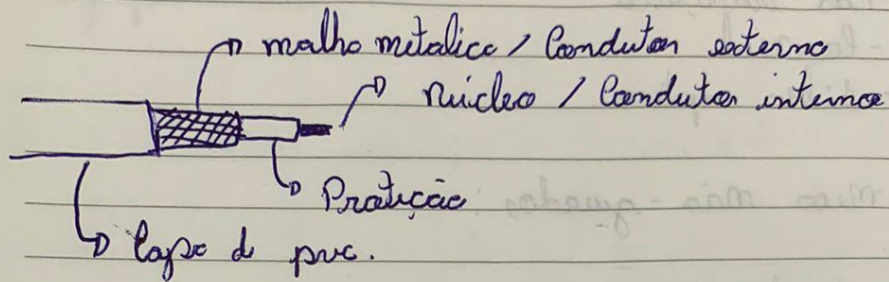 malha metalica / Condutor externo
núcleo / Condutor interno
Proteção
Capa d pvc.